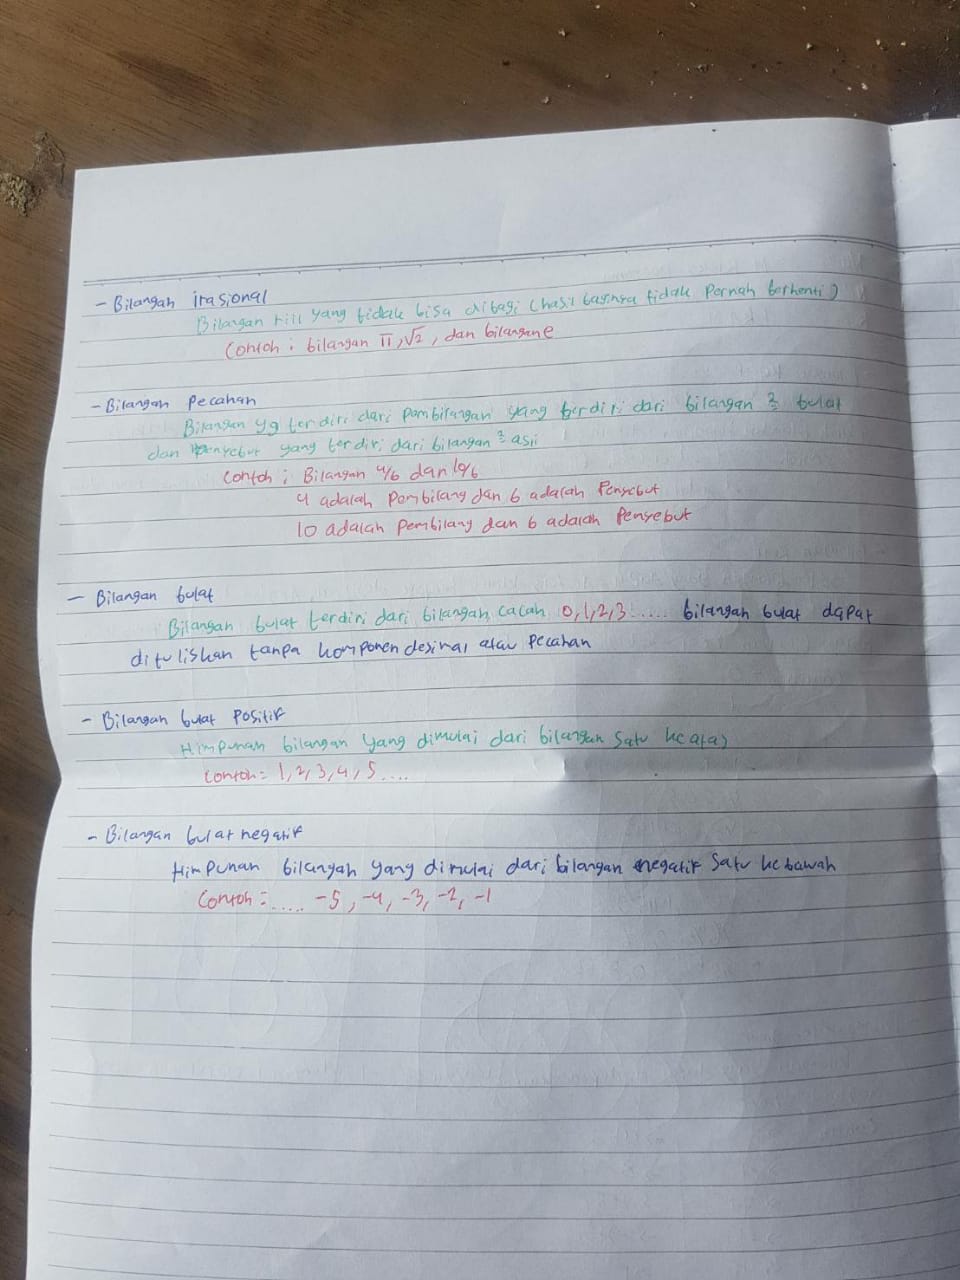 - Bilangan irasional
Bilangan rill yang tidak bisa dibagi (hasil baginya tidak Pernah berhenti)
Contoh : bilangan π, √2, dan bilangan e
- Bilangan Pecahan
Bilangan yg terdiri dari pembilangan yang terdiri dari bilangan ² bulat
dan Penyebut yang terdiri dari bilangan ² asli
Contoh : Bilangan 4/6 dan 10/6
4 adalah Pembilang dan 6 adalah Penyebut
10 adalah Pembilang dan 6 adalah Penyebut
- Bilangan bulat
Bilangan bulat terdiri dari bilangan cacah 0,1,2,3 ..... bilangan bulat dapat
dituliskan tanpa komponen desimal atau Pecahan
- Bilangan bulat Positif
Himpunan bilangan yang dimulai dari bilangan Satu keatas
Contoh = 1, 2, 3, 4, 5 ....
- Bilangan bulat negatif
Himpunan bilangan yang dimulai dari bilangan negatif Satu kebawah
Contoh = ..... -5, -4, -3, -2, -1